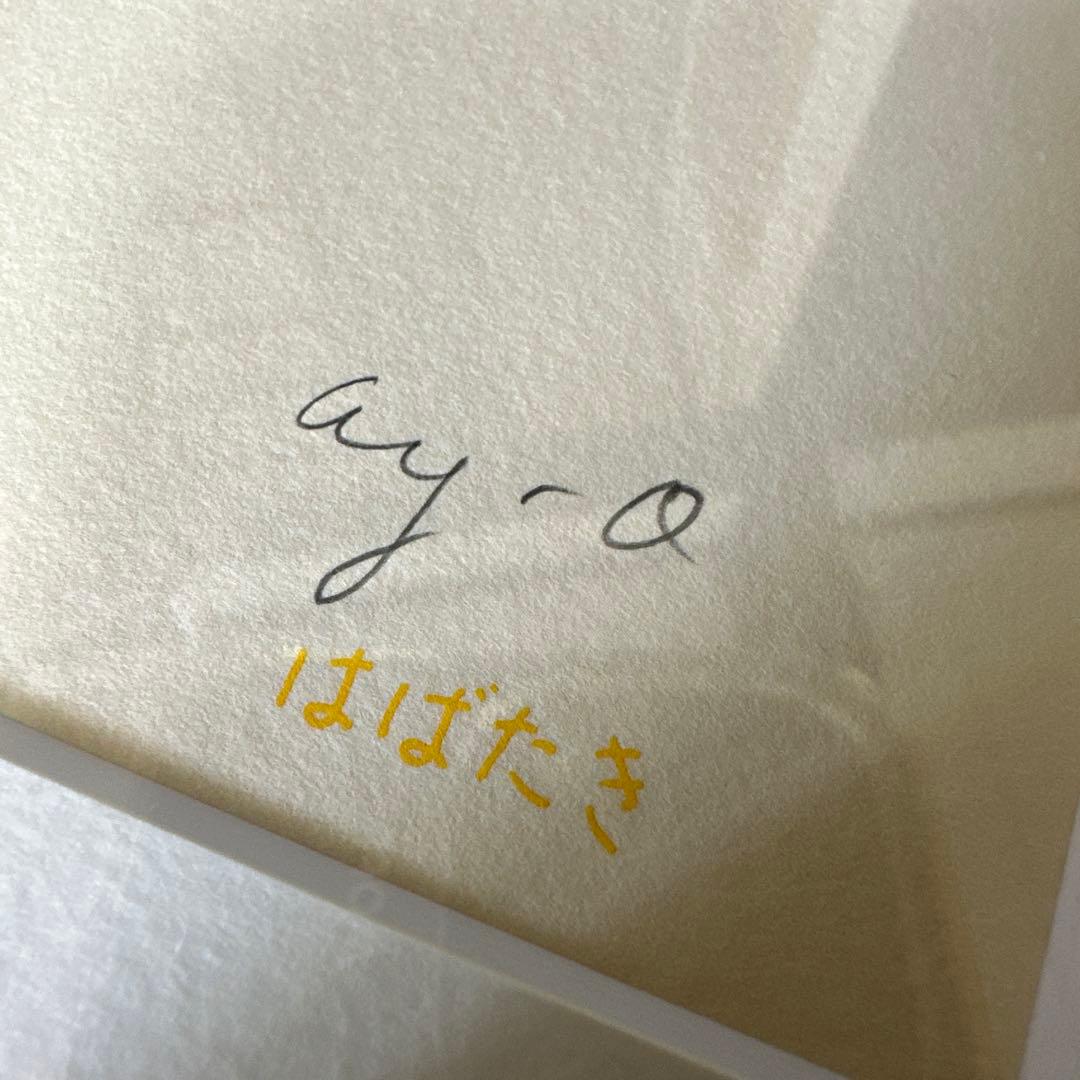 ay-o
はばたき